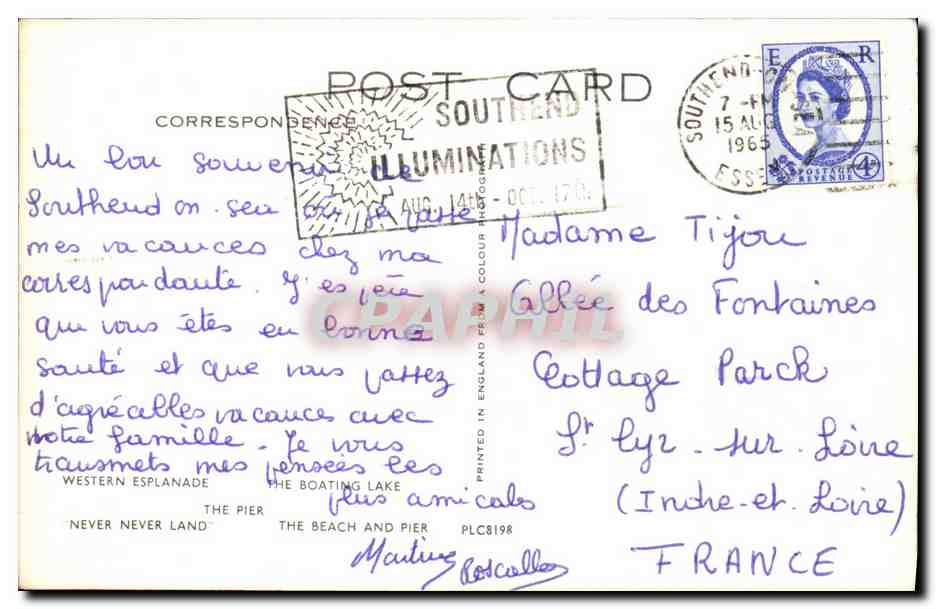 POST CARD
CORRESPONDENCE
SOUTHEND
ILLUMINATIONS
AUG. 14th - OCT. 17th
SOUTHEND
7 - PM
15 AUG
1965
ESSEX
E R
4D
POSTAGE
REVENUE
Un bon souvenir de
Southend on sea où je passe
mes vacances chez ma
correspondante. J'espère
que vous êtes en bonne
santé et que vous passez
d'agréables vacances avec
votre famille. Je vous
transmets mes pensées les
plus amicales
Martine
PRINTED IN ENGLAND FROM A COLOUR PHOTOGRAPH
Madame Tijou
Allée des Fontaines
Cottage Parck
St Cyr - sur - Loire
(Indre - et - Loire)
FRANCE
WESTERN ESPLANADE THE BOATING LAKE
THE PIER
"NEVER NEVER LAND" THE BEACH AND PIER PLC8198
CPAPHIL